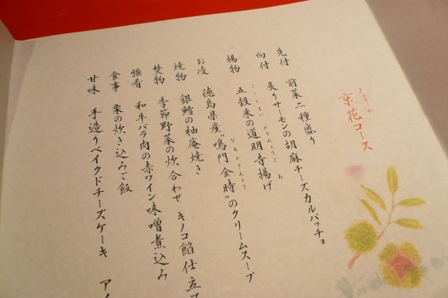 京花コース
先付 前菜二種盛り
向付 炙りサーモンの胡麻チーズカルパッチョ
揚物 五穀米の道明寺揚げ
お凌 徳島県産"鳴門金時"のクリームスープ
焼物 銀鱈の柚庵焼き
焚物 季節野菜の炊合わせ キノコ餡仕立
強肴 和牛バラ肉の赤ワイン味噌煮込み
食事 栗の炊き込みご飯
甘味 手造りベイクドチーズケーキ アイ